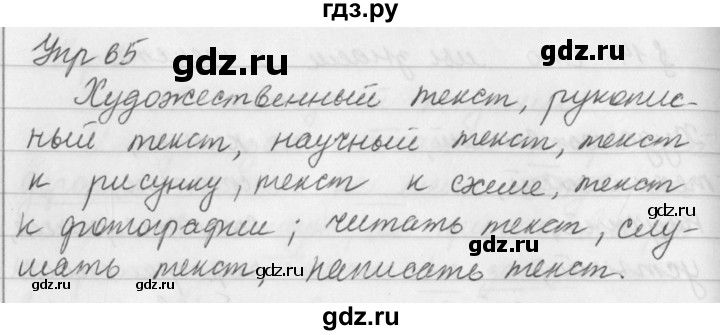 гдз.ру
Упр 65
gdz.ru gdz.ru
Художественный текст, рукопис-
gdz.ru gdz.ru
ный текст, научный текст, текст
к рисунку, текст к схеме, текст
gdz.ru gdz.ru
к фотографии; читать текст, слу-
gdz.ru
шать текст, написать текст.
gdz.ru gdz.ru
gdz.ru